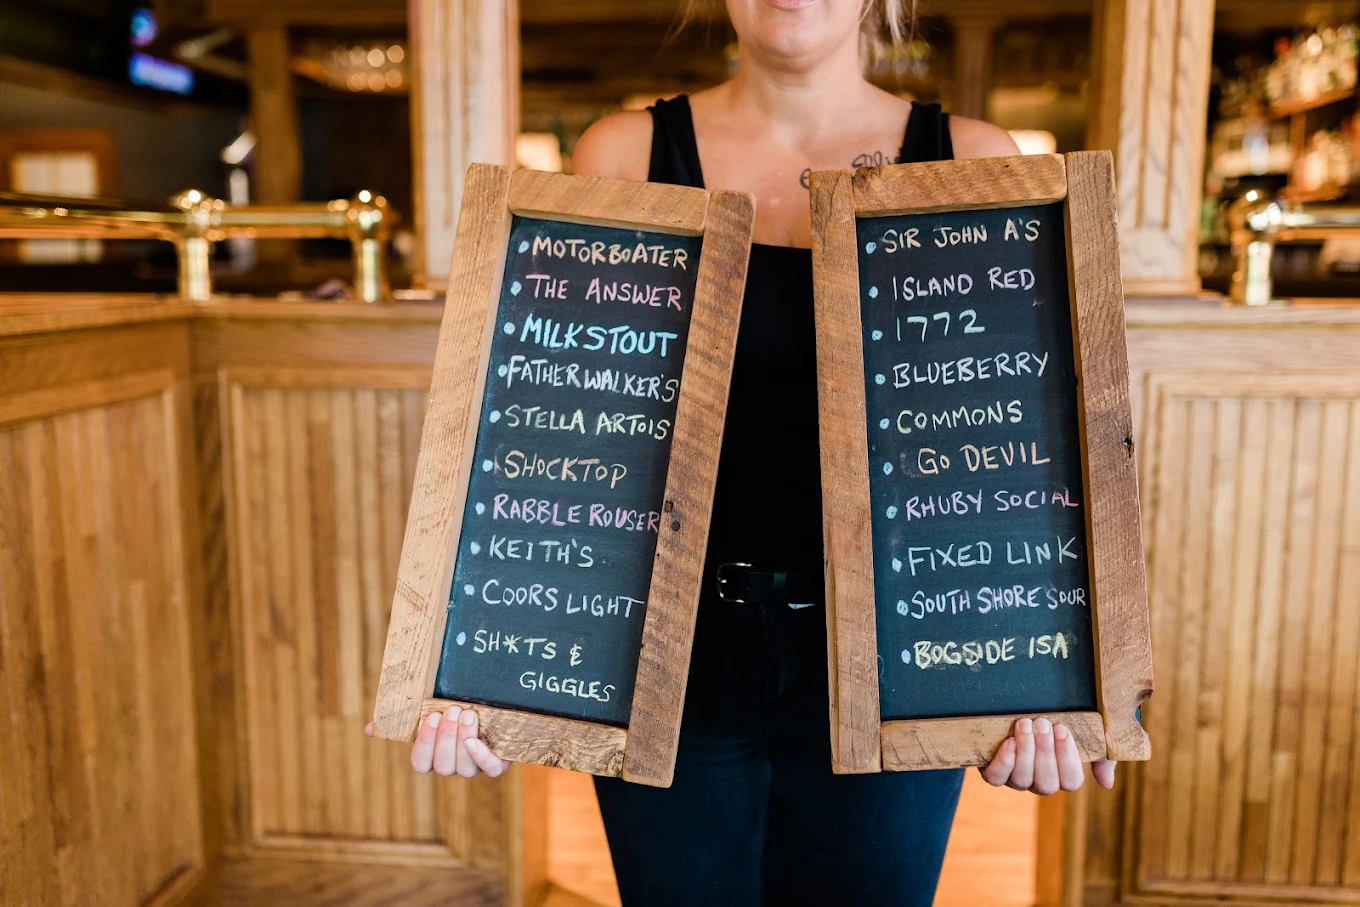 • MOTORBOATER
• THE ANSWER
• MILKSTOUT
• FATHERWALKER'S
• STELLA ARTOIS
• SHOCKTOP
• RABBLE ROUSER
• KEITH'S
• COORS LIGHT
• SH*TS &
GIGGLES
• SIR JOHN A'S
• ISLAND RED
• 1772
• BLUEBERRY
• COMMONS
• GO DEVIL
• RHUBY SOCIAL
• FIXED LINK
• SOUTH SHORE SOUR
• BOGSIDE ISA